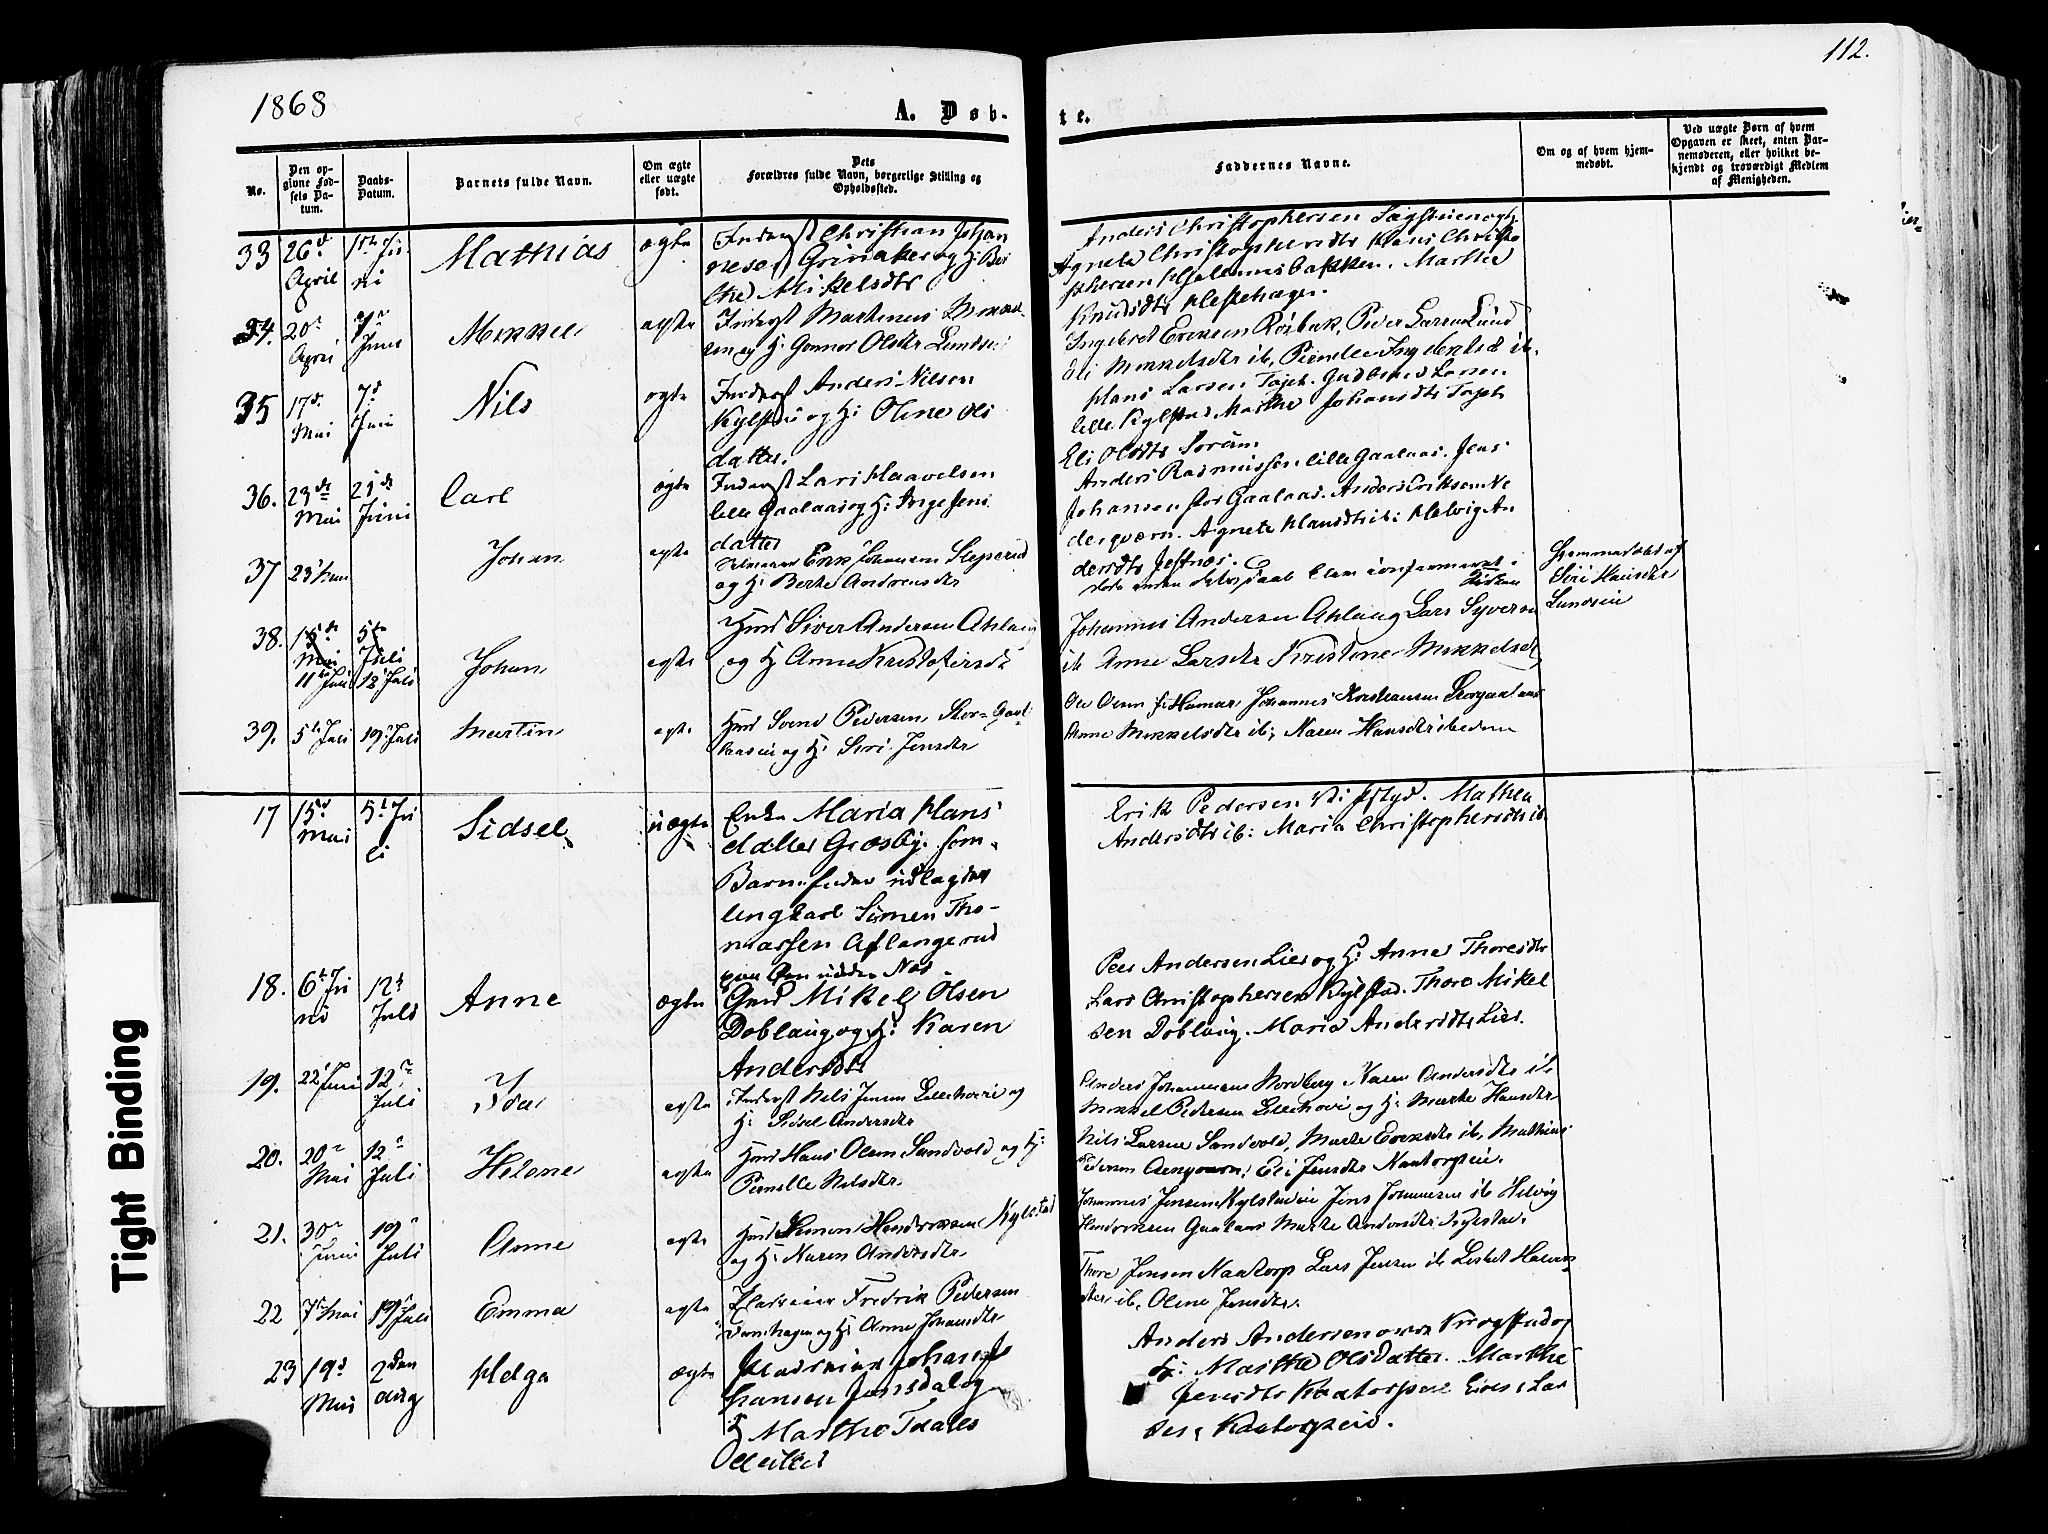 112.
1868
A. Døb-
te.
No.
Den op-
givne Fød-
sels Da-
tum.
Daabs-
Datum.
Barnets fulde Navn.
Om ægte
eller uægte
født.
Dets
Forældres fulde Navn, borgerlige Stilling og
Opholdssted.
Faddernes Navne.
Om og af hvem hjem-
medøbt.
Ved uægte Børn af hvem
Opgaven er skeet, enten Bar-
nemoderen, eller hvilket be-
kjendt og troværdigt Medlem
af Menigheden.
33 26d April Mathias ægte
Inderst Christian Johan
nesen Grinaker og H: Ber
the Mikelsdtr
Anders Christophersen
Agnete Christophersdtr Hans Christo
phersen Hjelmnsbakken. Marthe
Knudsdtr Hestehagen.
34. 20 April Juni Mikkel ægte
Inderst Martenius
og H: Gunnor Olsdtr Lundsei
Ingebret Eriksen Rosbak, Peder Larsen Lund
Eli Mikkelsdtr ib, Pernelle Ingebretsd ib.
35 17d Mai 7d Juni Nils ægte
Inderst Anders Nilsen
Kylstad og H: Oline Ols
datter.
Hans Larsen Tajet. Gudbrand Larsen
lille Kylstad Marthe Johansdtr Tajet
Eli Olsdtr
36. 23de Mai 21de Juni Carl ægte
Inderst Lars Haavelsen
lille Gaalaas og H: Inge Jens
datter
Anders Rasmussen lille Gaalaas. Jens
Johansen stor Gaalaas. Anders Eriksen Ne
derqværn. Agnete Hansdtr ib: Helvig An
dersdtr Jessnæs.
37 23 Juni Johan ægte
Erik Johannesen Sleperud
og H: Berte Andreasdtr
døde inden Daab blev confirmeret i
Kirken
Hjemmedøbt af
Siri Hansdtr
Lundsein
38. 15de Mai 5te Juli
11te Juli 12 Juli Johan ægte
Gmd Siver Andersen Ahlaug
og H: Anne Kristofersdt
Johannes Andersen Ahlaug Lars Syversen
ib Anne Larsdtr Kristine Mikkelsdt
39. 5te Juli 19 Juli Martin ægte
Gmd Svend Pedersen Stor-Gaal
aasen og H: Siri Jensdtr
Ole Olsen f: Hamar Johannes Kristiansen Storgaalaas
Anne Mikkelsdtr ib; Karen Hansdtr ibedem
17 15d Mai 5t Ju
li Sidsel uægte
Enke Maria Hans
datter Græsby. som
Barnefader udlagdes
Ungkarl Simen Tho-
massen Aflangerud
paa Øen udder Næs
Erik Pedersen Mathea
Andersdtr ib: Maria Christophersdtr ib
18. 6t Ju
ni 12t Juli Anne ægte
Gmd Mikel Olsen
Doblaug og H: Karen
Andersdtr
Peer Andersen Lier og H: Anne Thoresdtr
Lars Christophersen Kylstad. Thore Mikel
sen Doblaug. Maria Andersdtr Lier.
19. 22 Juni 12 Juli Ida ægte
Inderst Nils Jensen Lillehove og
H: Sidsel Andersdtr
Anders Johannesen Nordberg, Karen Andersdtr ib
Mikkel Pedersen Lillehove og H: Marte Hansdtr
20. 20 Mai 12 Juli Helene ægte
Gmd Hans Olsen Sandvold og H:
Pernelle Nilsdtr.
Nils Larsen Sandvold, Marte Eriksdtr ib, Mathias
Pedersen Aenqværn, Eli Jensdtr Kaatorpeie.
21. 30 Juni 19 Juli Anne ægte
Gmd Simen Hendriksen Kylstad
og H: Karen Andersdtr
Johannes Jensen Kylstadeie Jens Johannesen ib Helvig
Hendriksen Gaalaas Marte Andersdtr Kylstad.
22 7de Mai 19 Juli Emma ægte
Pladseier Fredrik Pedersen
Damhagen og H: Anne Johansdtr
Thore Jensen Kaatorp Lars Jensen ib Lisbet Halvors
dtr ib, Oline Jensdtr.
23 19d Mai 2den Aug Helga ægte
Pladseier Johan Jo
hansen Jensdal og
H Marthe Tdales
datter
Anders Andersen Krogstad og
H: Marthe Olsdatter. Marthe
Jensdtr Kaatorpeie Lar
sen Kaatorpeie.
Tight Binding